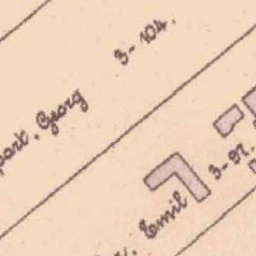 Georg 3-104.
Emil 3-97.